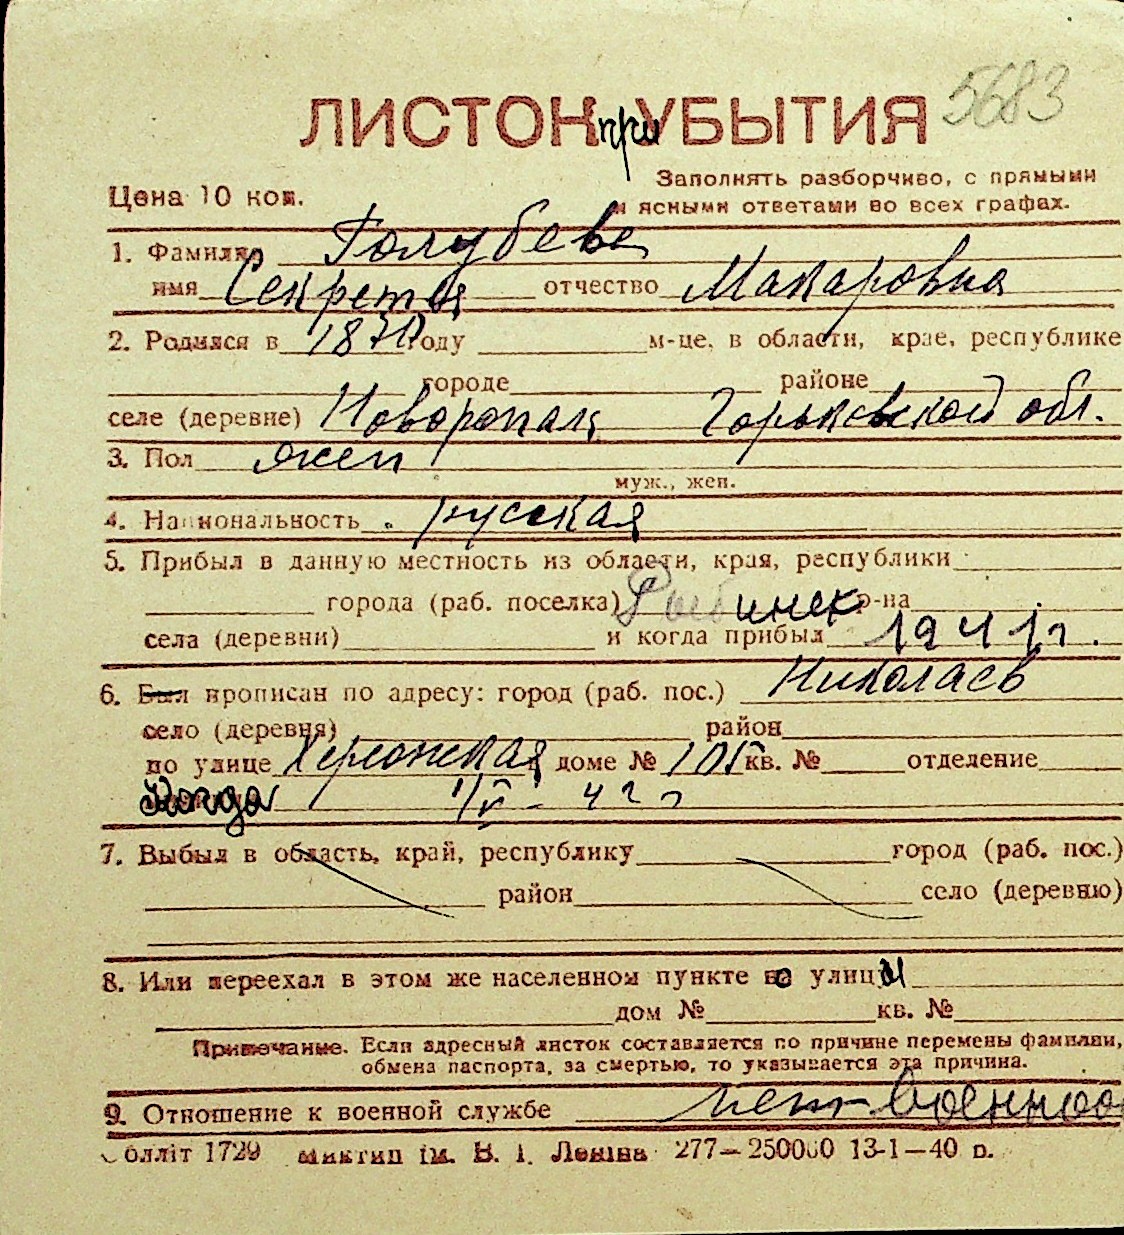 5683
ЛИСТОК при УБЫТИЯ
Заполнять разборчиво, с прямыми
Цена 10 коп.
и ясными ответами во всех графах.
1. Фамилия Голубева
имя отчество Макаровна
2. Родился в 1870 году м-це, в области, крае, республике
городе районе
селе (деревне) Горьковской обл.
3. Пол жен
муж., жен.
4. Национальность русская
5. Прибыл в данную местность из области, края, республики
города (раб. поселка) Рыбинск р-на
села (деревни) и когда прибыл 1941 г.
6. Был прописан по адресу: город (раб. пос.) Николаев
село (деревня) район
по улице Херсонская доме № 101 кв. № отделение
Когда 1/V - 42 г
7. Выбыл в область, край, республику город (раб. пос.)
район село (деревню)
8. Или переехал в этом же населенном пункте с улицы
дом № кв. №
Примечание. Если адресный листок составляется по причине перемены фамилии,
обмена паспорта, за смертью, то указывается эта причина.
9. Отношение к военной службе
Обліт 1729 ім. В. І. Леніна 277—250000 13-1—40 р.